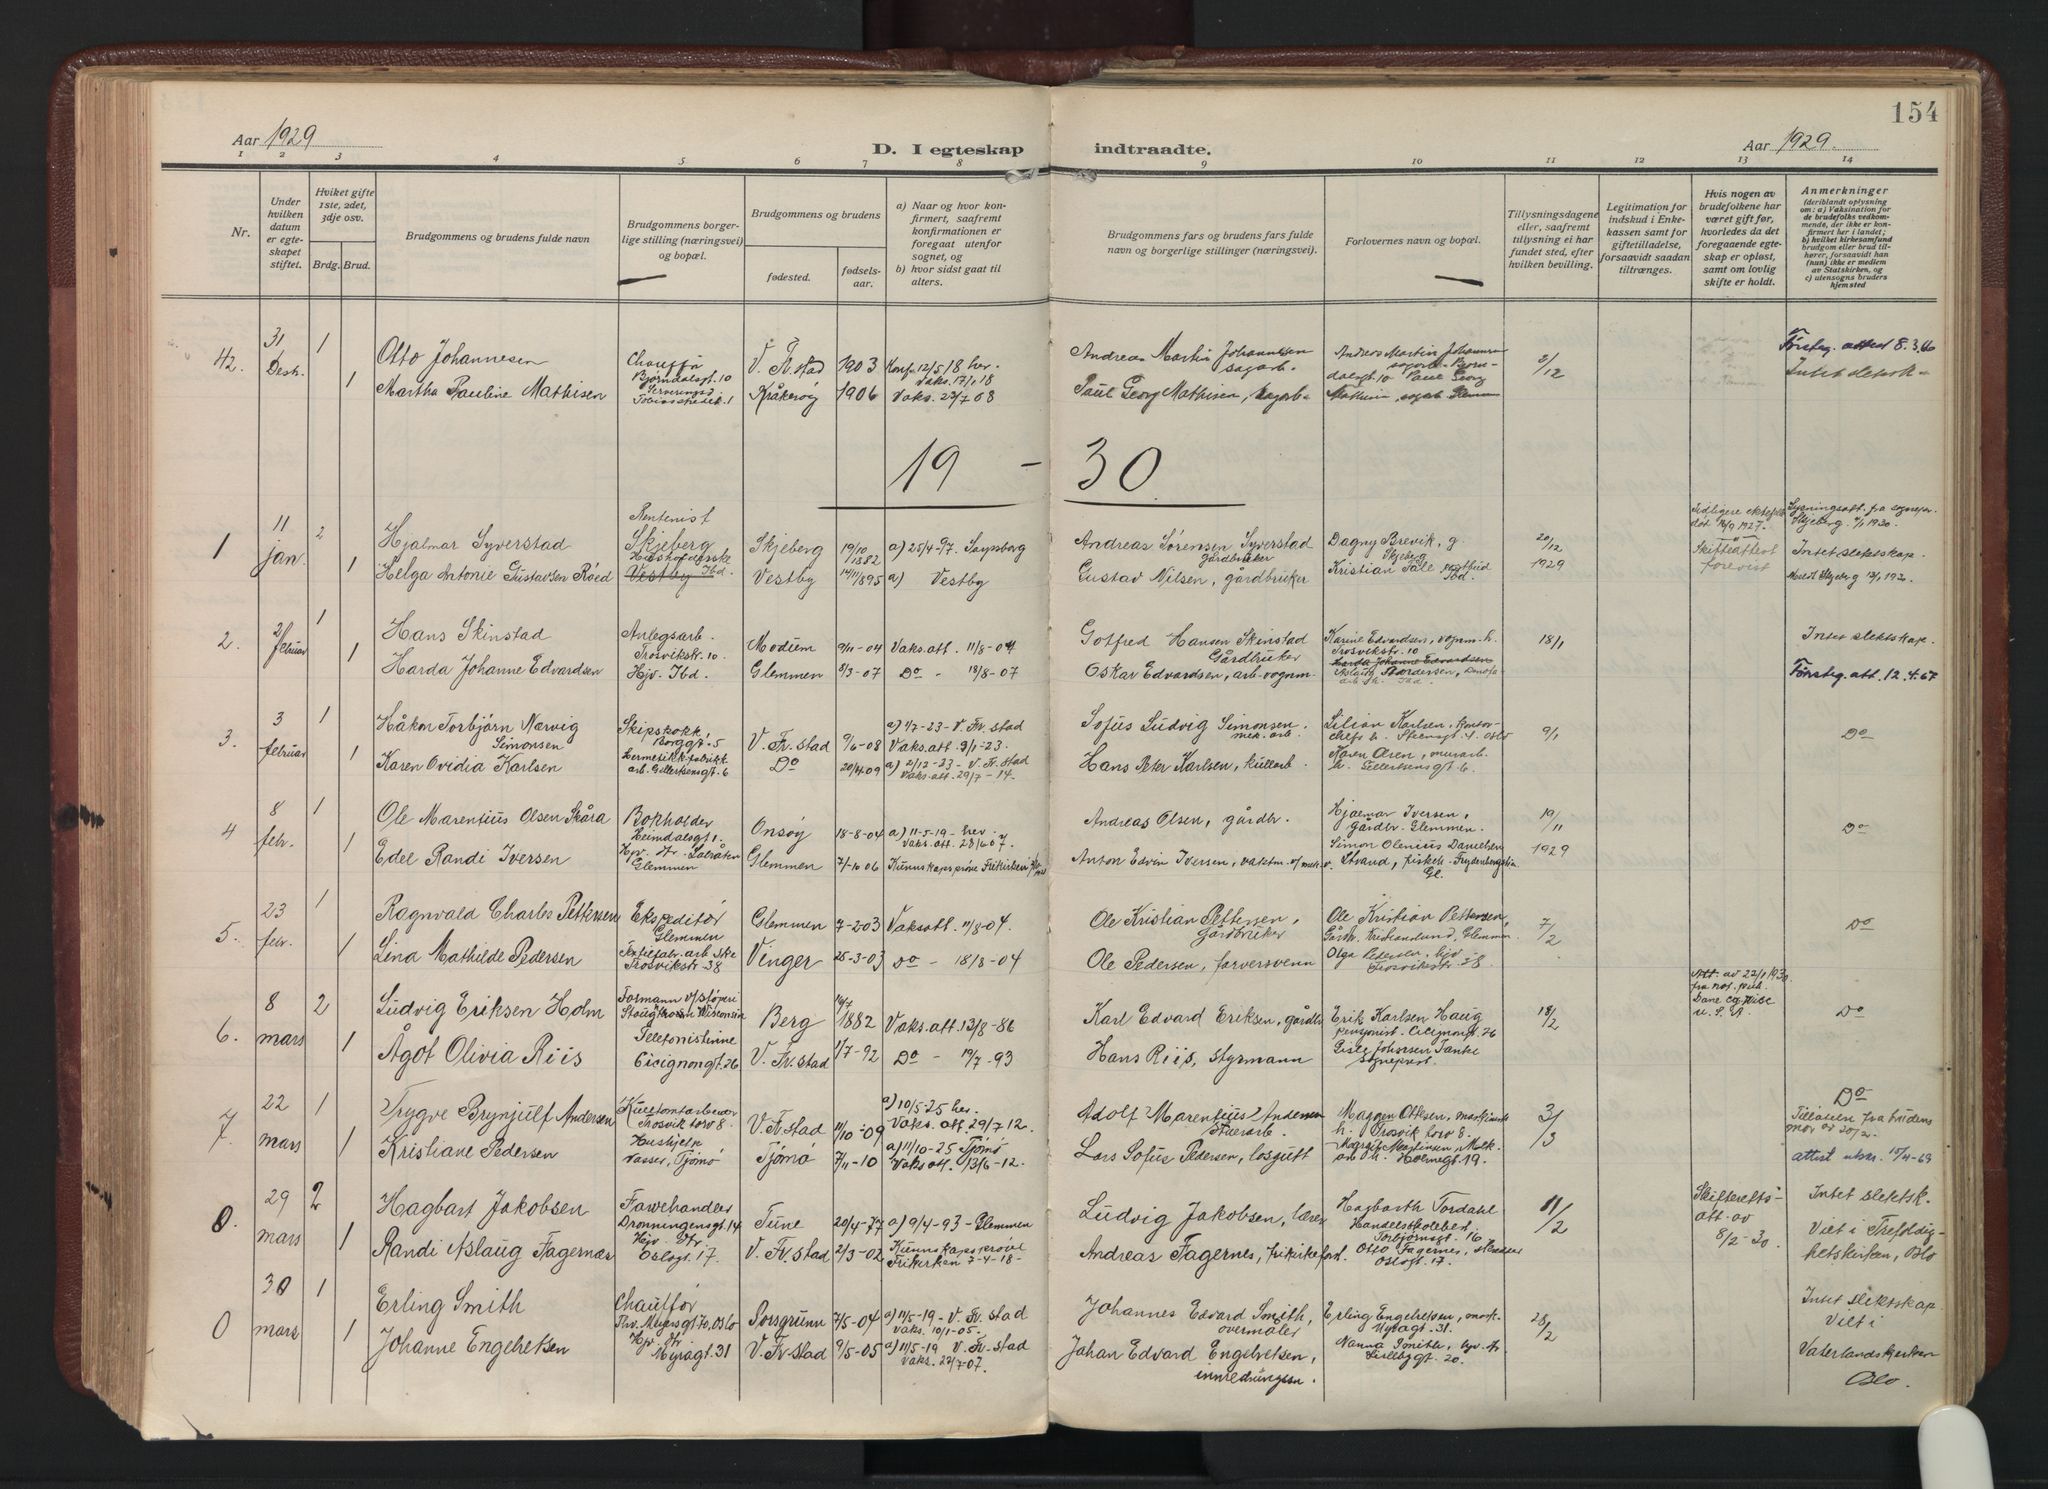 154
Aar 1929
D. I egteskap
indtraadte.
Aar 1929.
1 2 3 4 5 6 7 8 9 10 11 12 13 14
Nr.
Under hvilken datum er egteskapet stiftet.
Hviket gifte 1ste, 2det, 3dje osv.
Brdg. Brud.
Brudgommens og brudens fulde navn
Brudgommens borgerlige stilling (næringsvei) og bopæl.
Brudgommens og brudens
fødested.
fødselsaar.
a) Naar og hvor konfirmert, saafremt konfirmationen er foregaat utenfor sognet, og
b) hvor sidst gaat til alters.
Brudgommens fars og brudens fars fulde navn og borgerlige stillinger (næringsvei).
Forlovernes navn og bopæl.
Tillysningsdagene eller, saafremt tillysning ei har fundet sted, efter hvilken bevilling.
Legitimation for indskud i Enkekassen samt for giftetilladelse, forsaavidt saadan tiltrænges.
Hvis nogen av brudefolkene har været gift før, hvorledes da det foregaaende egteskap er opløst, samt om lovlig skifte er holdt.
Anmerkninger
(deriblandt oplysning om: a) Vaksination for de brudefolks vedkommende, der ikke er konfirmert her i landet; b) hvilket kirkesamfund brudgom eller brud tilhører, forsaavidt han (hun) ikke er medlem av Statskirken, og c) utensogns bruders hjemsted
42. 31 Desb. 1 Otto Johannesen Chauffør Bjørndalsgt. 10 V. Fr.stad 1903 Konf. 12/5 18 her. Vaks. 17/1 18 Andreas Martin Johannesen sagarb. 2/12 Førsteg. attest 8.3.66
1 Martha Pauline Mathisen Kråkerøy 1906 Vaks. 22/7 08 Paul Georg Mathisen, sagarb. Intet slektsk.
19 – 30
1 11 jan. 2 Hjalmar Syverstad Rentenist Skjeberg Skjeberg 19/10 1882 a) 25/4-97. Andreas Sørensen Syverstad Gårdbruker Dagny Brevik, g. Skjeberg 20/12 1929 Skifteattest forevist Intet slektskap.
1 Helga Antonie Gustavsen Røed Vestby Ibd. Vestby 14/11 1895 a) Vestby Gustav Nilsen, gårdbruker Kristian Tale
2. 2/ februar 1 Hans Skinstad Anlegsarb. Trosvikstr. 10 Modum 9/11-04 Vaks. att. 11/8-04 Gotfred Hansen Skinstad Gårdbruker Karine Edvardsen, vognm. h. Trosvikstr. 10 18/1 Intet slektskap.
1 Harda Johanne Edvardsen Hjv. Ibd. Glemmen 3/3-07 Do - 18/8-07 Oskar Edvardsen, arb-vognm. Harda Johanne Edvardsen Førsteg. att. 12.4.67
3. 3 februar 1 Håkon Torbjørn Nærvig Simonsen Skipskokk, Borggt. 5 V. Fr.stad 9/6-08 a) 1/7-23- V. Fr.stad Vaks. att. 3/1-23. Sofus Ludvig Simonsen mek. arb. Lilian Karlsen, kontorchefs h. 9/1 Do
1 Karen Ovidia Karlsen Hermetikkfabrikkarb. Gillertsensgt. 6 Do 20/4 09 a) 2/12-23- V. Fr.stad Vaks. att. 29/7-14. Hans Peter Karlsen, kullarb. Karen Olsen, murarb. h. Gillertsensgt. 6.
4 8 febr. 1 Ole Marentius Olsen Skåra Bokholder Heimdalsgt. 1. Onsøy 18-8-04 a) 11-5-19- her Vaks. att. 28/6 07. Andreas Olsen, gårdbr. Hjalmar Iversen, gårdbr. Glemmen. 19/11 1929 Do
1 Edel Randi Iversen Glemmen Glemmen 7/-10 06 Kunnskapsprøve Frikirken Anton Edvin Iversen, vaktm. Simon Olenius Danielsen Strand, Gl.
5. 23 febr. 1 Ragnvald Charles Pettersen Ekspeditør Glemmen Glemmen 7-2 03 Vaksatt. 11/8-04. Ole Kristian Pettersen, Gårdbruker Ole Kristian Pettersen, Gårdbr. Kristianlund, Glemmen. 7/2 Do
1 Lina Mathilde Pedersen Trosvikstr-38 Vinger 25-3-03 Do - 18/8-04 Ole Pedersen, farversvenn Olga Pedersen, hjv Trosvikstr. 38.
6. 8 mars 2 Ludvig Eriksen Holm Formann v/støperi Wisconsin Berg 16/7 1882 Vaks. att. 13/8-86 Karl Edvard Eriksen, gårdbr Erik Karlsen Haug pensjonist. Cicignongt. 26 18/2 Att. av 22/1 1930 fra not. pub. Dane Co, Wisc. U.S.A. Do
1 Ågot Olivia Riis Telefonistinne Cicignongt. 26 V. Fr.stad 1/7-92 Do - 19/7-93 Hans Riis, styrmann Gisle Johnsen Tanke sogneprest
7. 22 mars 1 Trygve Brynjulf Andersen Kulltomtarbeider Trosvik torv 8. V. Fr.stad 11/10-09 a) 10/5-25 her. Vaks. att 29/7 12. Adolf Marentius Andersen Stuerarb. Maggen Ottesen, Trosvik torv 8. 3/3 Do
1 Kristiane Pedersen Hushjelp Vasser, Tjømø Tjømø 7/11-10 a) 11/10-25 Tjømø Vaks att. 13/6-12. Lars Sofus Pedersen, losgutt Margit Martinsen, Holmegt. 19. Tillatelse fra brudens mor av 20/2. attest utskr. 15/4-69
8. 29 mars 2 Hagbart Jakobsen Farvehandler Dronningensgt. 14 Tune 20/4-77 a) 9/4-93-Glemmen Ludvig Jakobsen, lærer Hagbarth Tordahl Handelsskolebest. Torbjørnsgt. 16 11/2 Skifteretts-att. av 8/2-30. Intet slektsk.
1 Randi Aslaug Fagernæs Hjv. Str Oslogt. 17. V. Fr.stad 2/3-02 Kunnskapsprøve Frikirken 7-4-18- Andreas Fagernes, frikirkeforst. Otto Fagernes, Oslogt. 17. Viet i Trefoldighetskirken, Oslo
30 mars 1 Erling Smith Chauffør Thv. Meyersgt 70, Oslo Porsgrunn 7/5-04 a) 11/5-19- V. Fr.stad Vaks. 10/1-05. Johannes Edvard Smith, overmaler Erling Engebretsen, Myragt. 31. 28/2 Intet slektskap.
1 Johanne Engebretsen Hjv Str Myragt 31 V. Fr.stad 9/5-05 a) 11/5-19 V. Fr.stad Vaks. 22/7-07. Johan Edvard Engebretsen, innredningssn. Nanna Smith, Lislebygt. 20. Viet i Vaterlandskirken Oslo.